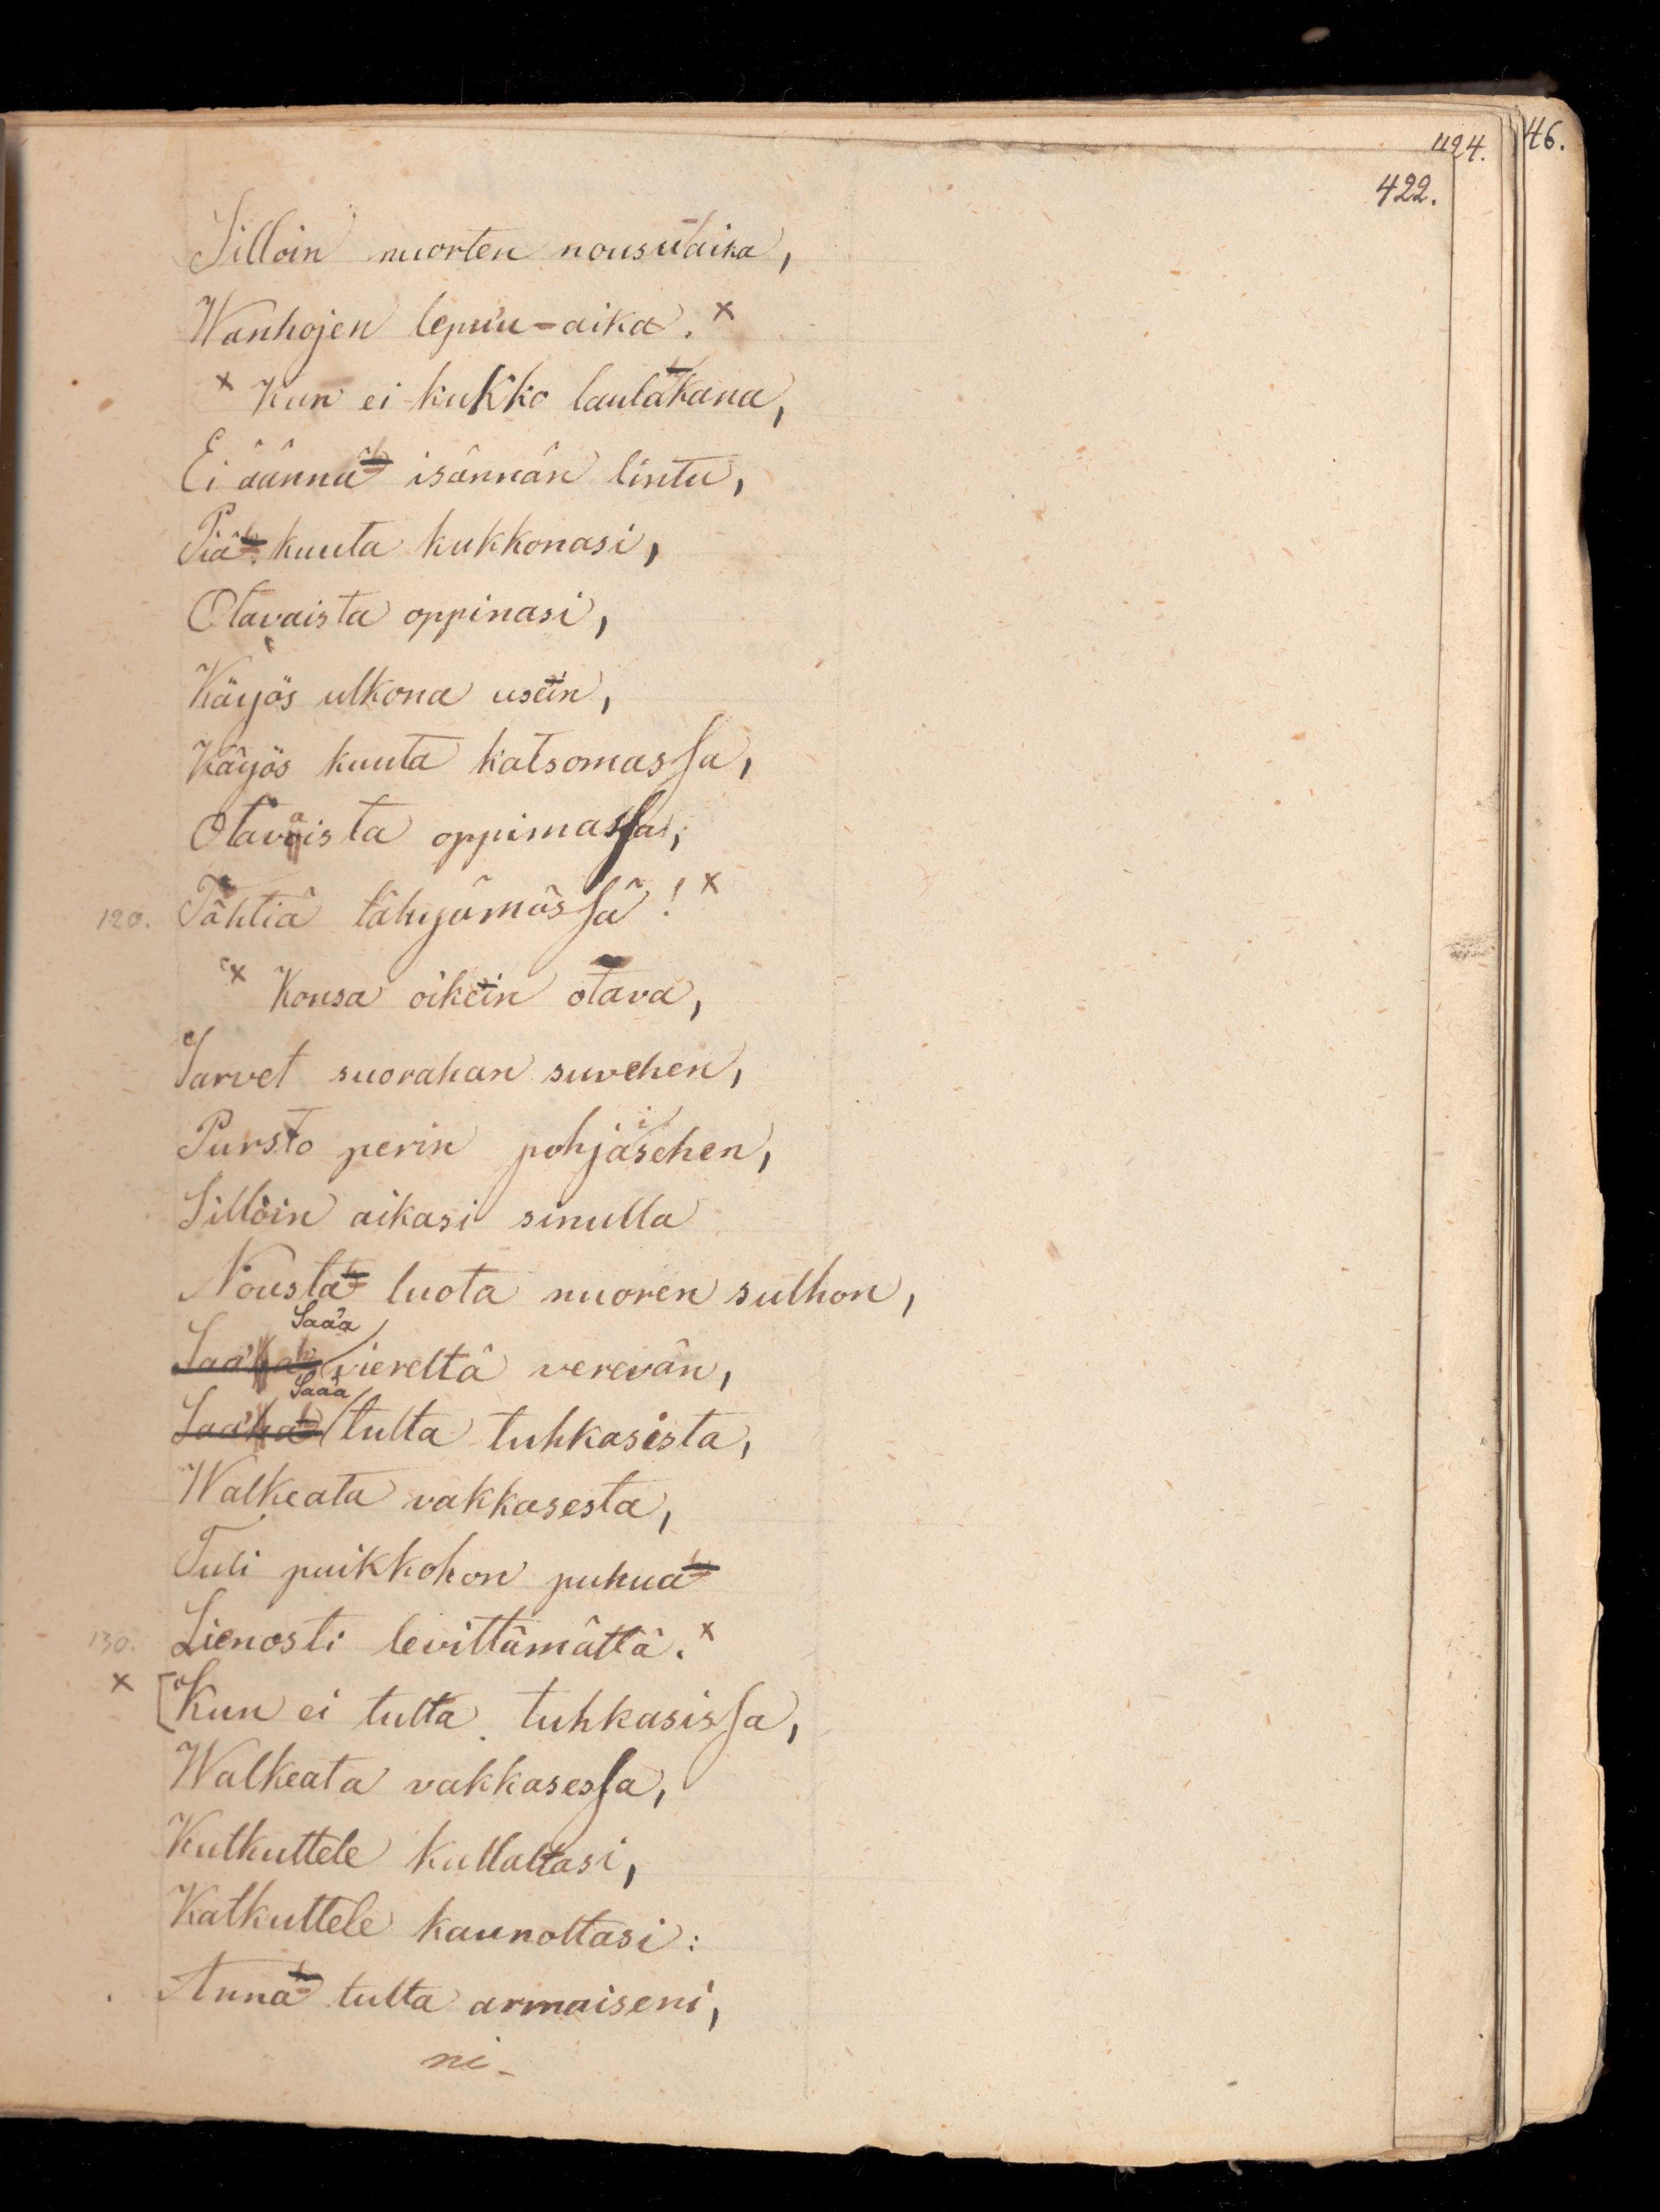 46.
424.
422.
Silloin nuorten nousu-aika,
Wanhojen lepuu-aika. x
x Kun ei kukko laulakana,
Ei äännä isännän lintu,
Piä kuuta kukkonasi,
Otavaista oppinasi,
Käyös ulkona usein,
Käyös kuuta katsomassa,
Otavaista oppimassa,
120. Tähtiä tähyämässä! x
x Konsa oikein otava,
Sarvet suorahan suvehen,
Pursto perin pohjaisehen,
Silloin aikasi sinulla
Nousta luota nuoren sulhon,
Saaa
viereltä verevän,
Saaa
tulta tuhkasista,
Walkeata vakkasesta,
Tuli puikkohon puhua
130. Lienosti levittämättä. x
x [Kun ei tulta tuhkasissa,
Walkeata vakkasessa,
Kutkuttele kullaltasi,
Katkuttele kaunoltasi:
Anna tulta armaiseni,
ni-